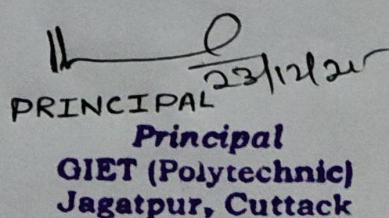 PRINCIPAL
Principal
GIET (Polytechnic)
Jagatpur, Cuttack